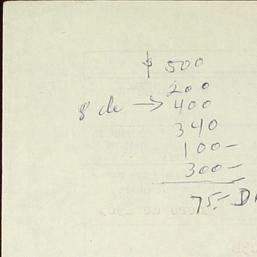 $ 500
200
8 de → 400
340
100-
300-
75.- D